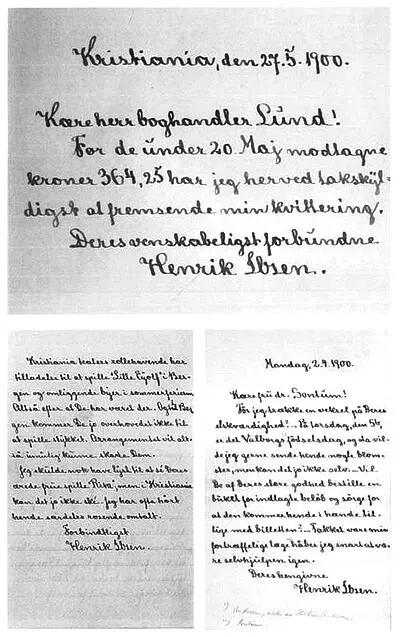 Kristiania, den 27.5.1900.
Kære herr boghandler Lund!
For de under 20 Maj modtagne
kroner 364,25 har jeg herved takskyl-
digst at fremsende min kvittering.
Deres venskabeligst forbundne
Henrik Ibsen.
Kristiania teaters rollehavende har
tilladelse til at spille "Lille Eyolf" i Ber-
gen og omliggende byer i sommerferien
Altså efter at De har været der. Ber
gen kommer De jo overhovedet ikke til
at spille stykket. Arrangementet vil alt-
så umulig kunne skade Dem.
Jeg skulde nok have lyst til at se Deres
frue spille "Rita", men i Kristiania
kan det jo ikke ske. Jeg har ofte hørt
hende særdeles rosende omtalt.
Forbindtligst
Henrik Ibsen.
Mandag, 2.4.1900.
Kære fru dr. Sontum!
Tør jeg trække en veksel på Deres
elskværdighed? – På torsdag, den 5te,
er det Valborgs fødselsdag, og da vil-
de jeg gerne sende hende nogle blom-
ster, men kan det jo ikke selv. – Vil
De af Deres store godhed bestille en
buket for indlagte beløb og sørge for
at den kommer hende i hænde til-
lige med billetten? – Takket være min
fortræffelige læge håber jeg snart at væ-
re selvhjulpen igen.
Deres hengivne
Henrik Ibsen.